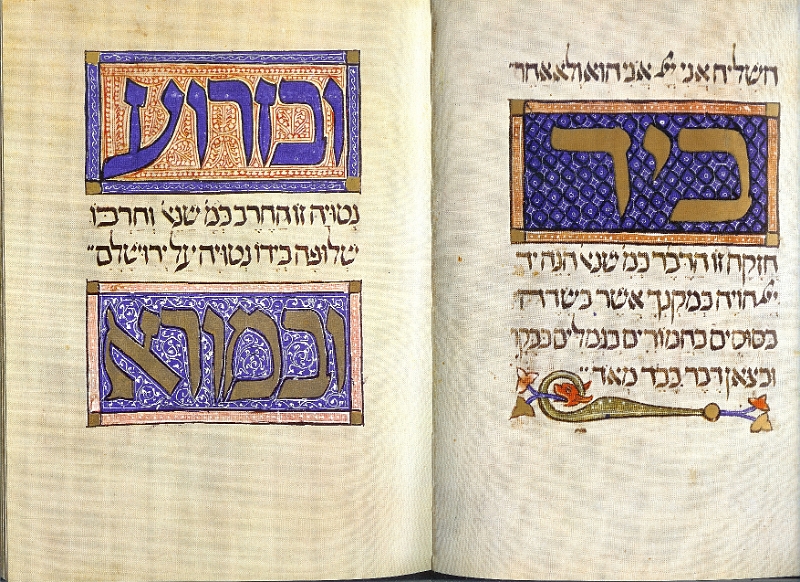 השליח אני יי אני הוא ולא אחר
ביד
חזקה זו הדבר כמ׳ שנא׳ הנה יד
יי הויה במקנך אשר בשדה
בסוסים בחמורים בגמלים בבקר
ובצאן דבר כבד מאד
ובזרוע
נטויה זו החרב כמ׳ שנא׳ וחרבו
שלופה בידו נטויה על ירושלם
ובמורא